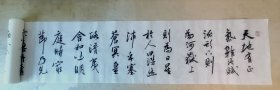 天地有正
氣雜然賦
流形下則
為河嶽上
則為日星
於人曰浩然
沛乎塞
蒼冥皇
路當清夷
含和吐明
庭時窮
節乃見